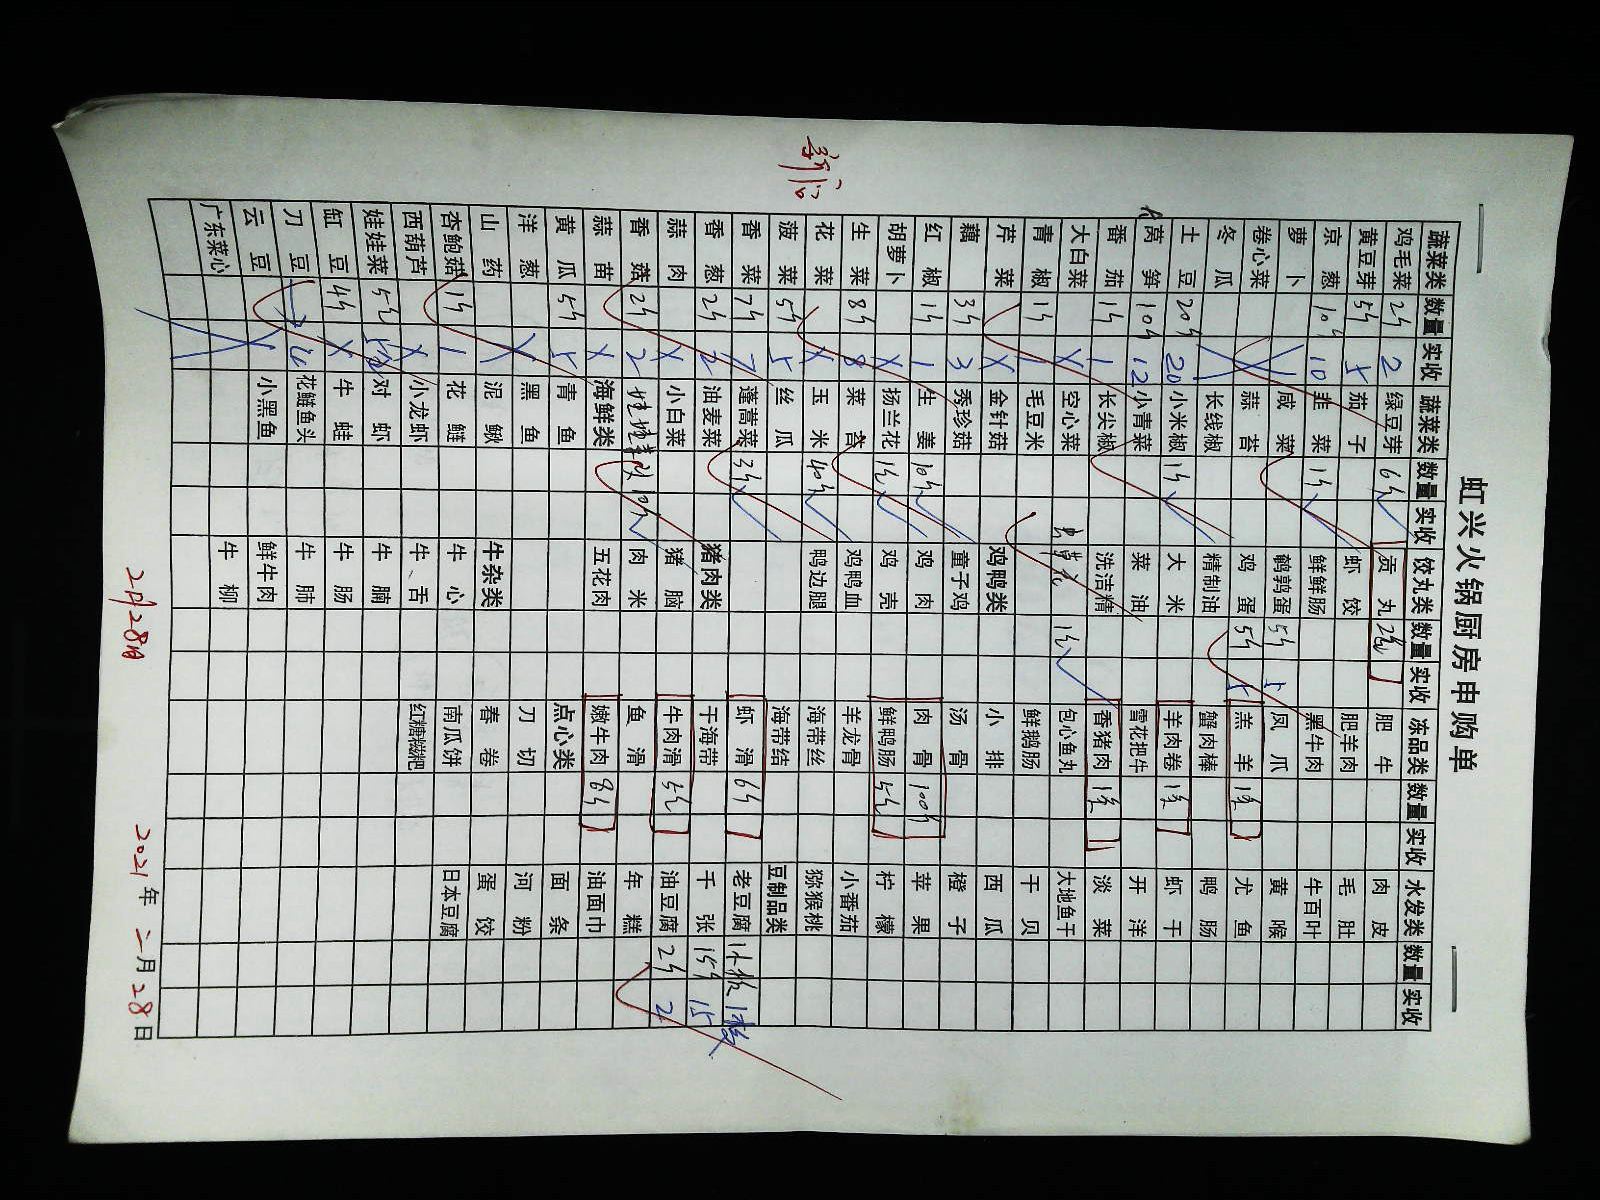 虹兴火锅厨房申购单
蔬菜类 数量 实收 蔬菜类 数量 实收 饺丸类 数量 实收 冻品类 数量 实收 水发类 数量 实收
鸡毛菜 2斤 2 绿豆芽 6斤 贡丸 2包 肥牛 肉皮
黄豆芽 5斤 茄子 虾饺 肥羊肉 毛肚
京葱 10斤 10 韭菜 1斤 鲜鲜肠 黑牛肉 牛百叶
萝卜 咸菜 鹌鹑蛋 5斤 5 凤爪 黄喉
卷心菜 蒜苔 鸡蛋 5斤 5 羔羊 1条 尤鱼
冬瓜 长线椒 精制油 蟹肉棒 鸭肠
土豆 20斤 20 小米椒 1斤 大米 羊肉卷 1条 虾干
莴笋 10斤 12 小青菜 菜油 雪花把牛 开洋
番茄 1斤 1 长尖椒 洗洁精 香猪肉 1条 淡菜
大白菜 空心菜 虫草花 1包 包心鱼丸 大地鱼干
青椒 1斤 1 毛豆米 鲜鹅肠 干贝
芹菜 金针菇 鸡鸭类 小排 西瓜
藕 3斤 3 秀珍菇 童子鸡 汤骨 橙子
红椒 1斤 1 生姜 10斤 鸡肉 肉骨 100斤 苹果
胡萝卜 扬兰花 1包 鸡壳 鲜鸭肠 5包 柠檬
生菜 8斤 8 菜苔 鸡鸭血 羊龙骨 小番茄
花菜 玉米 40斤 鸭边腿 海带丝 猕猴桃
菠菜 5斤 5 丝瓜 海带结 豆制品类
香菜 7斤 7 蓬蒿菜 3斤 虾滑 6斤 老豆腐 1小板 1板
香葱 2斤 2 油麦菜 猪肉类 干海带 千张 15斤 15
蒜肉 小白菜 猪脑 牛肉滑 5包 油豆腐 2斤 2
香菇 2斤 2 肉米 鱼滑 年糕
蒜苗 海鲜类 五花肉 嫩牛肉 8斤 油面巾
黄瓜 5斤 5 青鱼 点心类 面条
洋葱 黑鱼 刀切 河粉
山药 泥鳅 牛杂类 春卷 蛋饺
杏鲍菇 1斤 1 花鲢 牛心 南瓜饼 日本豆腐
西葫芦 小龙虾 牛舌 红糖糍粑
娃娃菜 5包 5包 对虾 牛腩
缸豆 4斤 牛蛙 牛肠
刀豆 花鲢鱼头 牛肺
云豆 小黑鱼 鲜牛肉
广东菜心 牛柳
2月28日 2021年 二月28日